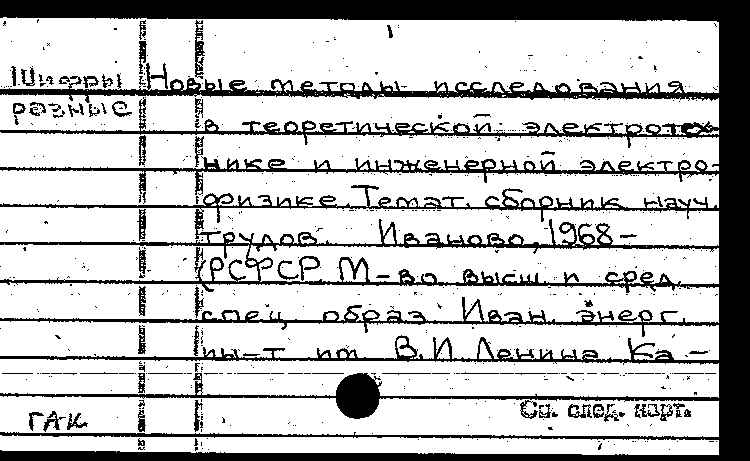 Шифры разные
Новые методы исследования
в теоретической электротех-
нике и инженерной электро-
физике. Темат. сборник науч.
трудов. Иваново, 1968-
(РСФСР М-во высш и сред.
спец образ Иван. энерг.
ин-т им В.И Ленина Ка-
ГАК
См. след. карт.